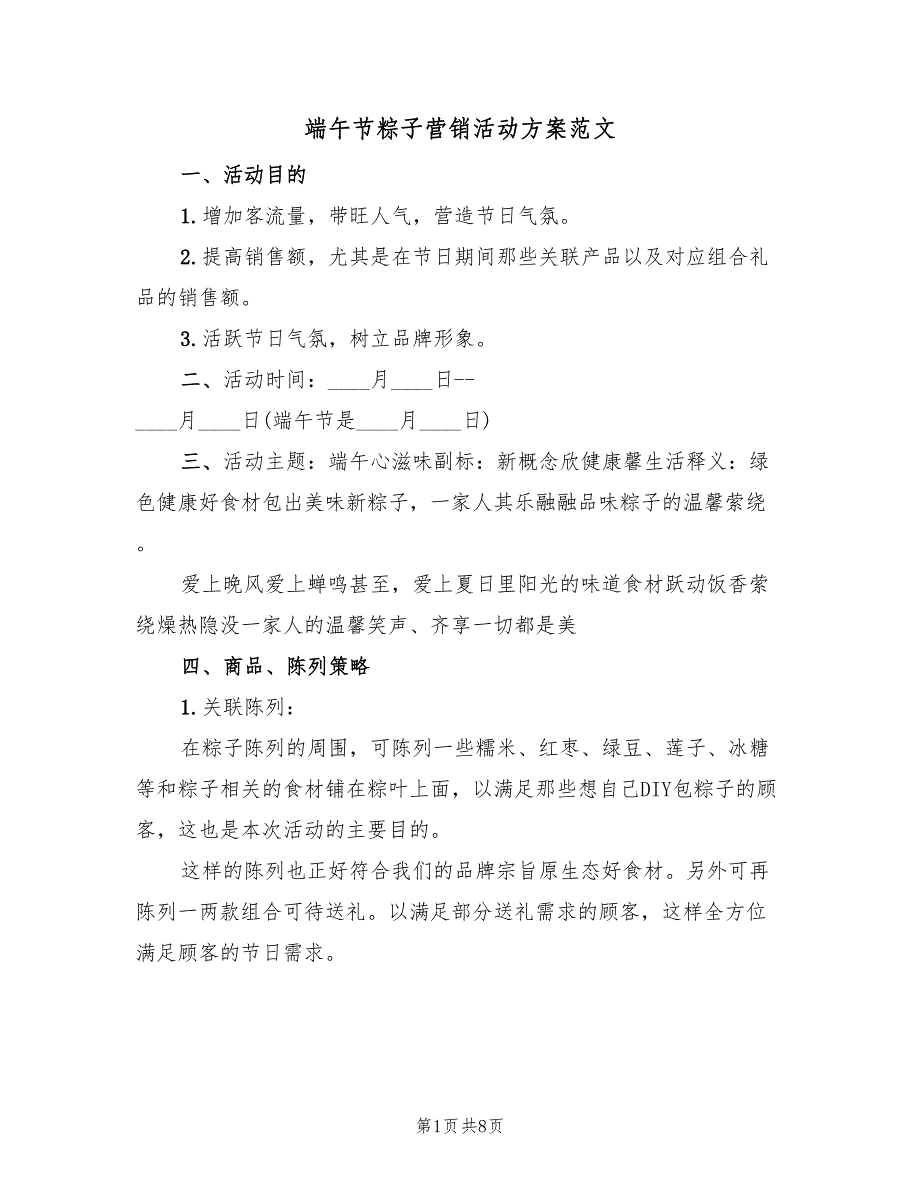 端午节粽子营销活动方案范文
一、活动目的
1.增加客流量，带旺人气，营造节日气氛。
2.提高销售额，尤其是在节日期间那些关联产品以及对应组合礼
品的销售额。
3.活跃节日气氛，树立品牌形象。
二、活动时间：____月____日--
____月____日(端午节是____月____日)
三、活动主题：端午心滋味副标：新概念欣健康馨生活释义：绿
色健康好食材包出美味新粽子，一家人其乐融融品味粽子的温馨萦绕
。
爱上晚风爱上蝉鸣甚至，爱上夏日里阳光的味道食材跃动饭香萦
绕燥热隐没一家人的温馨笑声、齐享一切都是美
四、商品、陈列策略
1.关联陈列：
在粽子陈列的周围，可陈列一些糯米、红枣、绿豆、莲子、冰糖
等和粽子相关的食材铺在粽叶上面，以满足那些想自己DIY包粽子的顾
客，这也是本次活动的主要目的。
这样的陈列也正好符合我们的品牌宗旨原生态好食材。另外可再
陈列一两款组合可待送礼。以满足部分送礼需求的顾客，这样全方位
满足顾客的节日需求。
第1页共8页